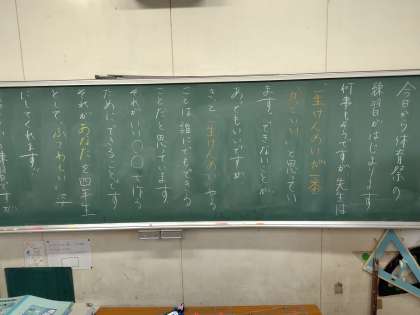 今日から体育祭の
練習がはじまります
何事もそうですが先生は
一生けんめいが一番
かっこいいと思ってい
ます。できないことが
あってもいいですが
きっと一生けんめいやる
ことは誰にでもできる
ことだと思ています
それがいい〇〇を
ためにできることです
それがあなたを四年生
としてふさわしい子
にしてくれます。